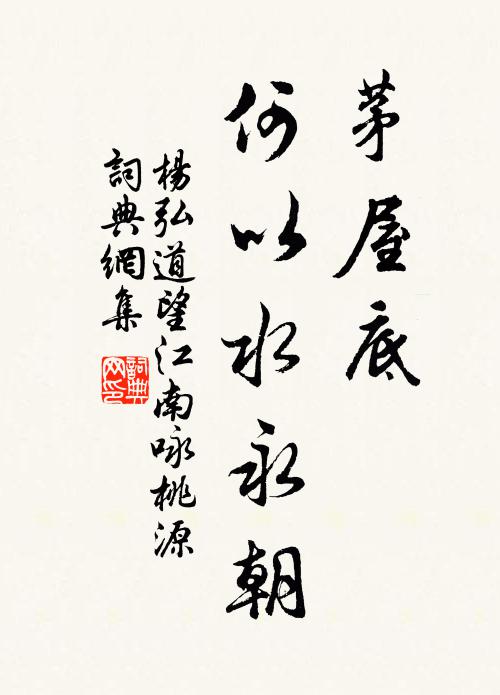 茅屋底
何以水永朝
楊弘道望江南咏桃源
詞典網集
詞典網印